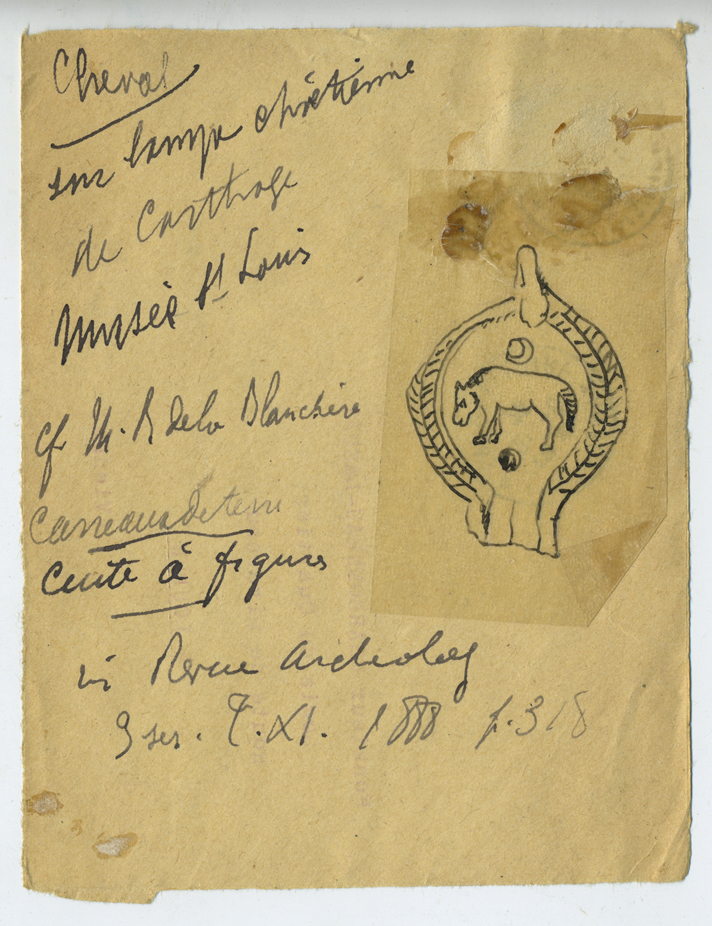 Cheval
sur lampe chrétienne
de Carthage
Musée St Louis
cf. M. R de la Blanchère
Carreaux de terre
Cuite à figures
in Revue Archeolog
3 ser. T. XI. 1888 p. 318